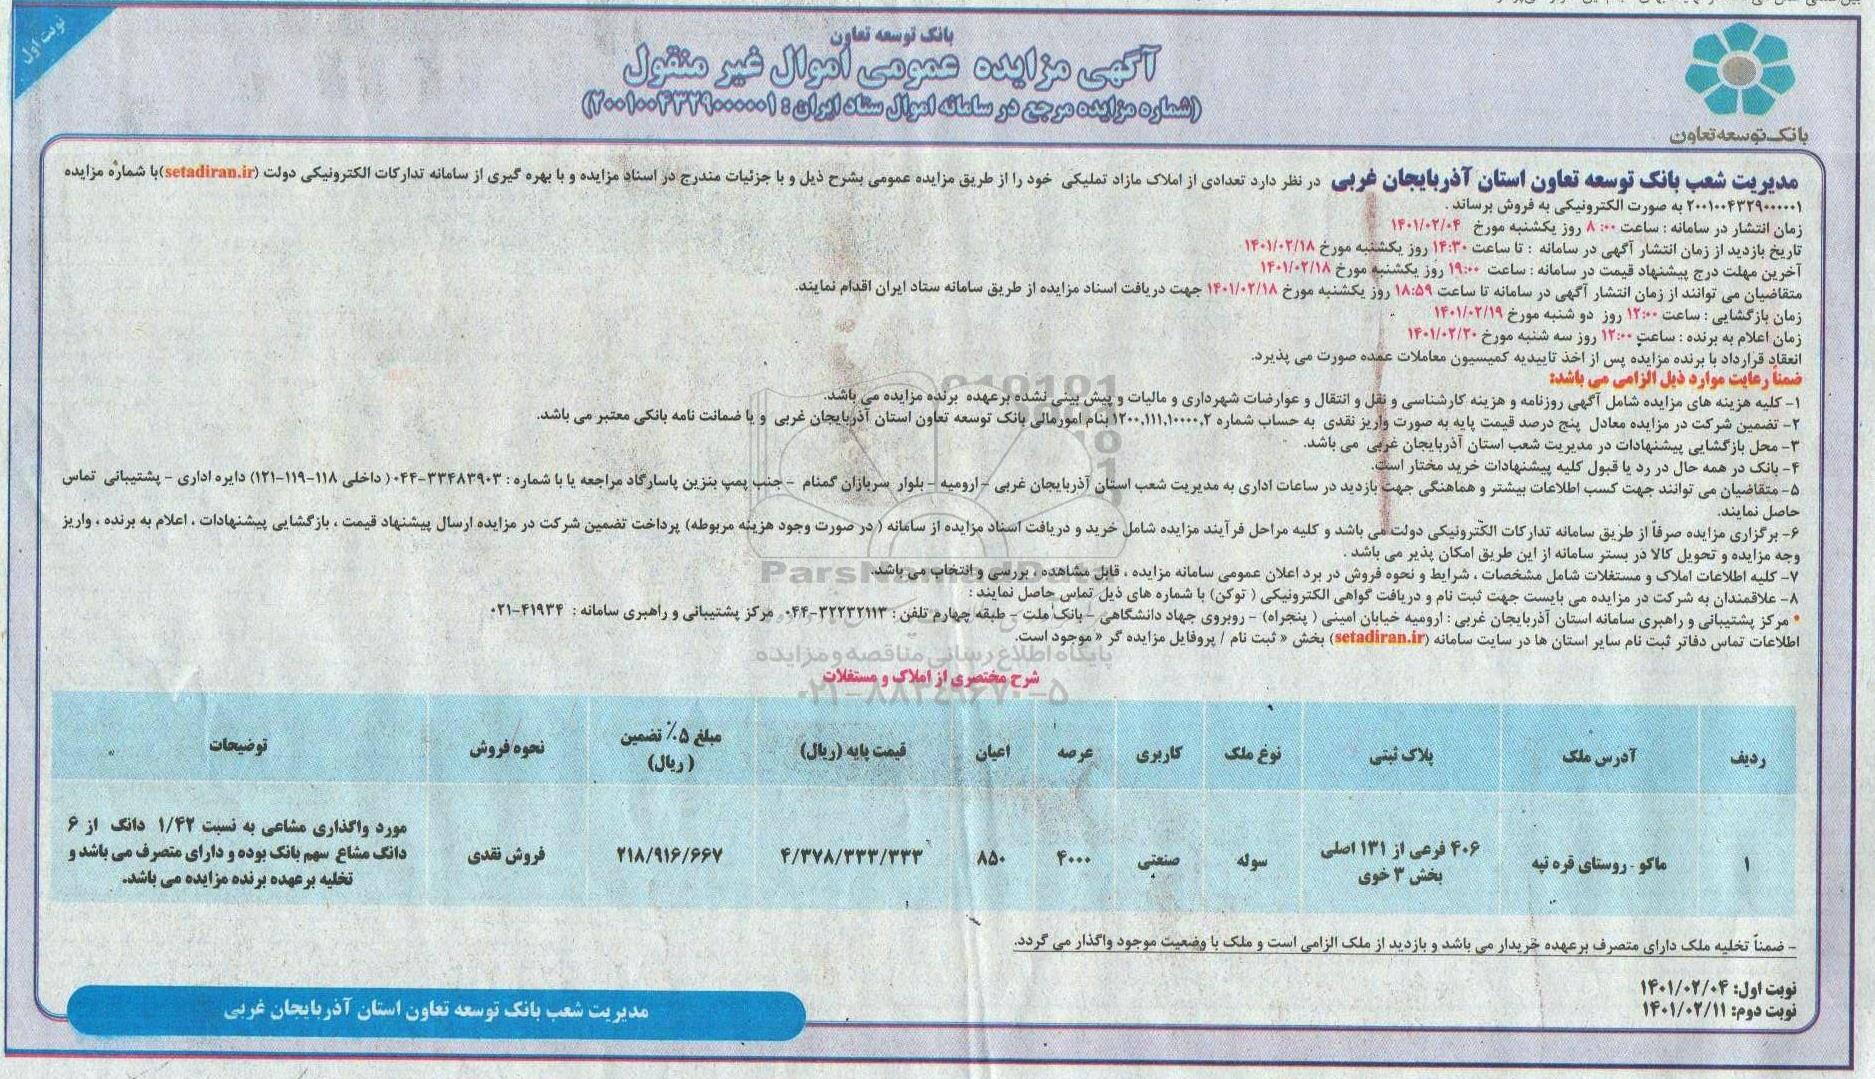 نوبت اول
بانک توسعه تعاون
آگهی مزایده عمومی اموال غیر منقول
(شماره مزایده مرجع در سامانه اموال ستاد ایران : ۲۰۰۱۰۰۴۳۲۹۰۰۰۰۰۱)
بانک توسعه تعاون
مدیریت شعب بانک توسعه تعاون استان آذربایجان غربی در نظر دارد تعدادی از املاک مازاد تملیکی خود را از طریق مزایده عمومی بشرح ذیل و با جزئیات مندرج در اسناد مزایده و با بهره گیری از سامانه تدارکات الکترونیکی دولت (setadiran.ir)با شماره مزایده
۲۰۰۱۰۰۴۳۲۹۰۰۰۰۰۱ به صورت الکترونیکی به فروش برساند .
زمان انتشار در سامانه : ساعت ۸:۰۰ روز یکشنبه مورخ ۱۴۰۱/۰۲/۰۴
تاریخ بازدید از زمان انتشار آگهی در سامانه : تا ساعت ۱۴:۳۰ روز یکشنبه مورخ ۱۴۰۱/۰۲/۱۸
آخرین مهلت درج پیشنهاد قیمت در سامانه : ساعت ۱۹:۰۰ روز یکشنبه مورخ ۱۴۰۱/۰۲/۱۸
متقاضیان می توانند از زمان انتشار آگهی در سامانه تا ساعت ۱۸:۵۹ روز یکشنبه مورخ ۱۴۰۱/۰۲/۱۸ جهت دریافت اسناد مزایده از طریق سامانه ستاد ایران اقدام نمایند.
زمان بازگشایی : ساعت ۱۲:۰۰ روز دو شنبه مورخ ۱۴۰۱/۰۲/۱۹
زمان اعلام به برنده : ساعت ۱۲:۰۰ روز سه شنبه مورخ ۱۴۰۱/۰۲/۲۰
انعقاد قرارداد با برنده مزایده پس از اخذ تاییدیه کمیسیون معاملات عمده صورت می پذیرد.
ضمناً رعایت موارد ذیل الزامی می باشد:
۱- کلیه هزینه های مزایده شامل آگهی روزنامه و هزینه کارشناسی و نقل و انتقال و عوارضات شهرداری و مالیات و پیش بینی نشده برعهده برنده مزایده می باشد.
۲- تضمین شرکت در مزایده معادل پنج درصد قیمت پایه به صورت واریز نقدی به حساب شماره ۱۲۰۰,۱۱۱,۱۰۰۰۰,۲ بنام امورمالی بانک توسعه تعاون استان آذربایجان غربی و یا ضمانت نامه بانکی معتبر می باشد.
۳- محل بازگشایی پیشنهادات در مدیریت شعب استان آذربایجان غربی می باشد.
۴- بانک در همه حال در رد یا قبول کلیه پیشنهادات خرید مختار است.
۵- متقاضیان می توانند جهت کسب اطلاعات بیشتر و هماهنگی جهت بازدید در ساعات اداری به مدیریت شعب استان آذربایجان غربی - ارومیه - بلوار سربازان گمنام - جنب پمپ بنزین پاسارگاد مراجعه یا با شماره : ۳۳۴۸۳۹۰۳-۰۴۴ ( داخلی ۱۱۸-۱۱۹-۱۲۱) دایره اداری - پشتیبانی تماس
حاصل نمایند.
۶- برگزاری مزایده صرفاً از طریق سامانه تدارکات الکترونیکی دولت می باشد و کلیه مراحل فرآیند مزایده شامل خرید و دریافت اسناد مزایده از سامانه ( در صورت وجود هزینه مربوطه) پرداخت تضمین شرکت در مزایده ارسال پیشنهاد قیمت ، بازگشایی پیشنهادات ، اعلام به برنده ، واریز
وجه مزایده و تحویل کالا در بستر سامانه از این طریق امکان پذیر می باشد .
۷- کلیه اطلاعات املاک و مستغلات شامل مشخصات ، شرایط و نحوه فروش در برد اعلان عمومی سامانه مزایده ، قابل مشاهده ، بررسی و انتخاب می باشد.
۸- علاقمندان به شرکت در مزایده می بایست جهت ثبت نام و دریافت گواهی الکترونیکی ( توکن) با شماره های ذیل تماس حاصل نمایند :
* مرکز پشتیبانی و راهبری سامانه استان آذربایجان غربی : ارومیه خیابان امینی ( پنجراه) - روبروی جهاد دانشگاهی - بانک ملت - طبقه چهارم تلفن : ۳۲۲۳۲۱۱۳-۰۴۴ مرکز پشتیبانی و راهبری سامانه : ۴۱۹۳۴-۰۲۱
اطلاعات تماس دفاتر ثبت نام سایر استان ها در سایت سامانه (setadiran.ir) بخش « ثبت نام / پروفایل مزایده گر » موجود است.
ParsNamadData
پایگاه اطلاع رسانی مناقصه و مزایده
۰۲۱-۸۸۳۴۹۶۷۰-۵
شرح مختصری از املاک و مستغلات
ردیف آدرس ملک پلاک ثبتی نوع ملک کاربری عرصه اعیان قیمت پایه (ریال) مبلغ ۵٪ تضمین ( ریال) نحوه فروش توضیحات
۱ ماکو - روستای قره تپه ۴۰۶ فرعی از ۱۳۱ اصلی بخش ۳ خوی سوله صنعتی ۴۰۰۰ ۸۵۰ ۴/۳۷۸/۳۳۳/۳۳۳ ۲۱۸/۹۱۶/۶۶۷ فروش نقدی مورد واگذاری مشاعی به نسبت ۱/۴۲ دانگ از ۶ دانگ مشاع سهم بانک بوده و دارای متصرف می باشد و تخلیه برعهده برنده مزایده می باشد.
- ضمناً تخلیه ملک دارای متصرف برعهده خریدار می باشد و بازدید از ملک الزامی است و ملک با وضعیت موجود واگذار می گردد.
نوبت اول: ۱۴۰۱/۰۲/۰۴
نوبت دوم: ۱۴۰۱/۰۲/۱۱
مدیریت شعب بانک توسعه تعاون استان آذربایجان غربی